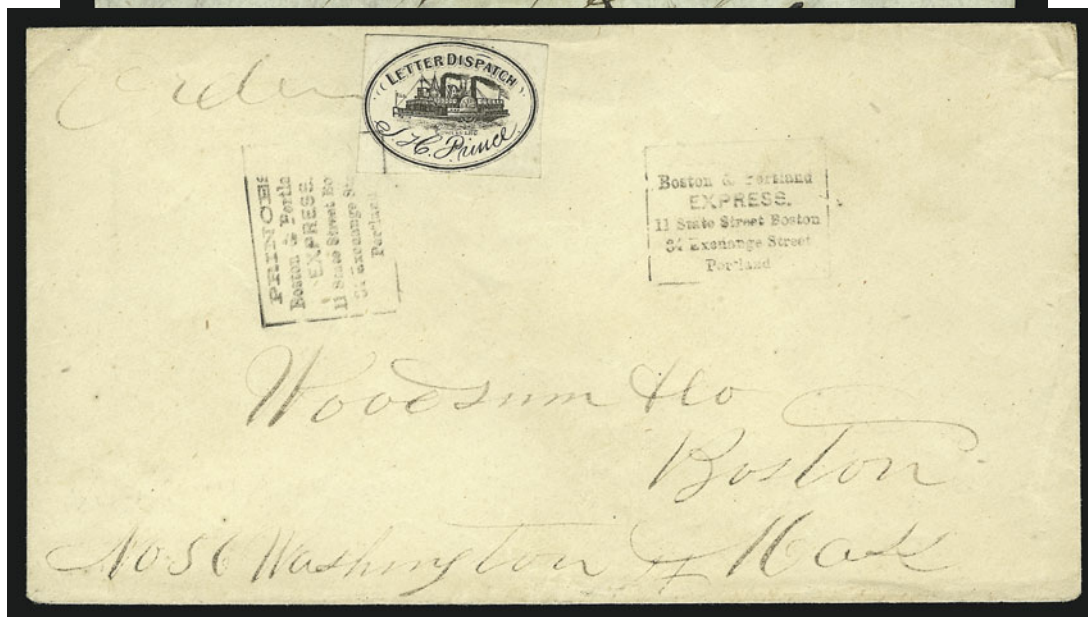 Order
LETTER DISPATCH
J. H. Prince
PRINCES
Boston & Portla
EXPRESS.
11 State Street Bo
34 Exchange St
Portland
Boston & Portland
EXPRESS.
11 State Street Boston
34 Exchange Street
Portland
Woodsum & Co
Boston
No 56 Washington St Mass